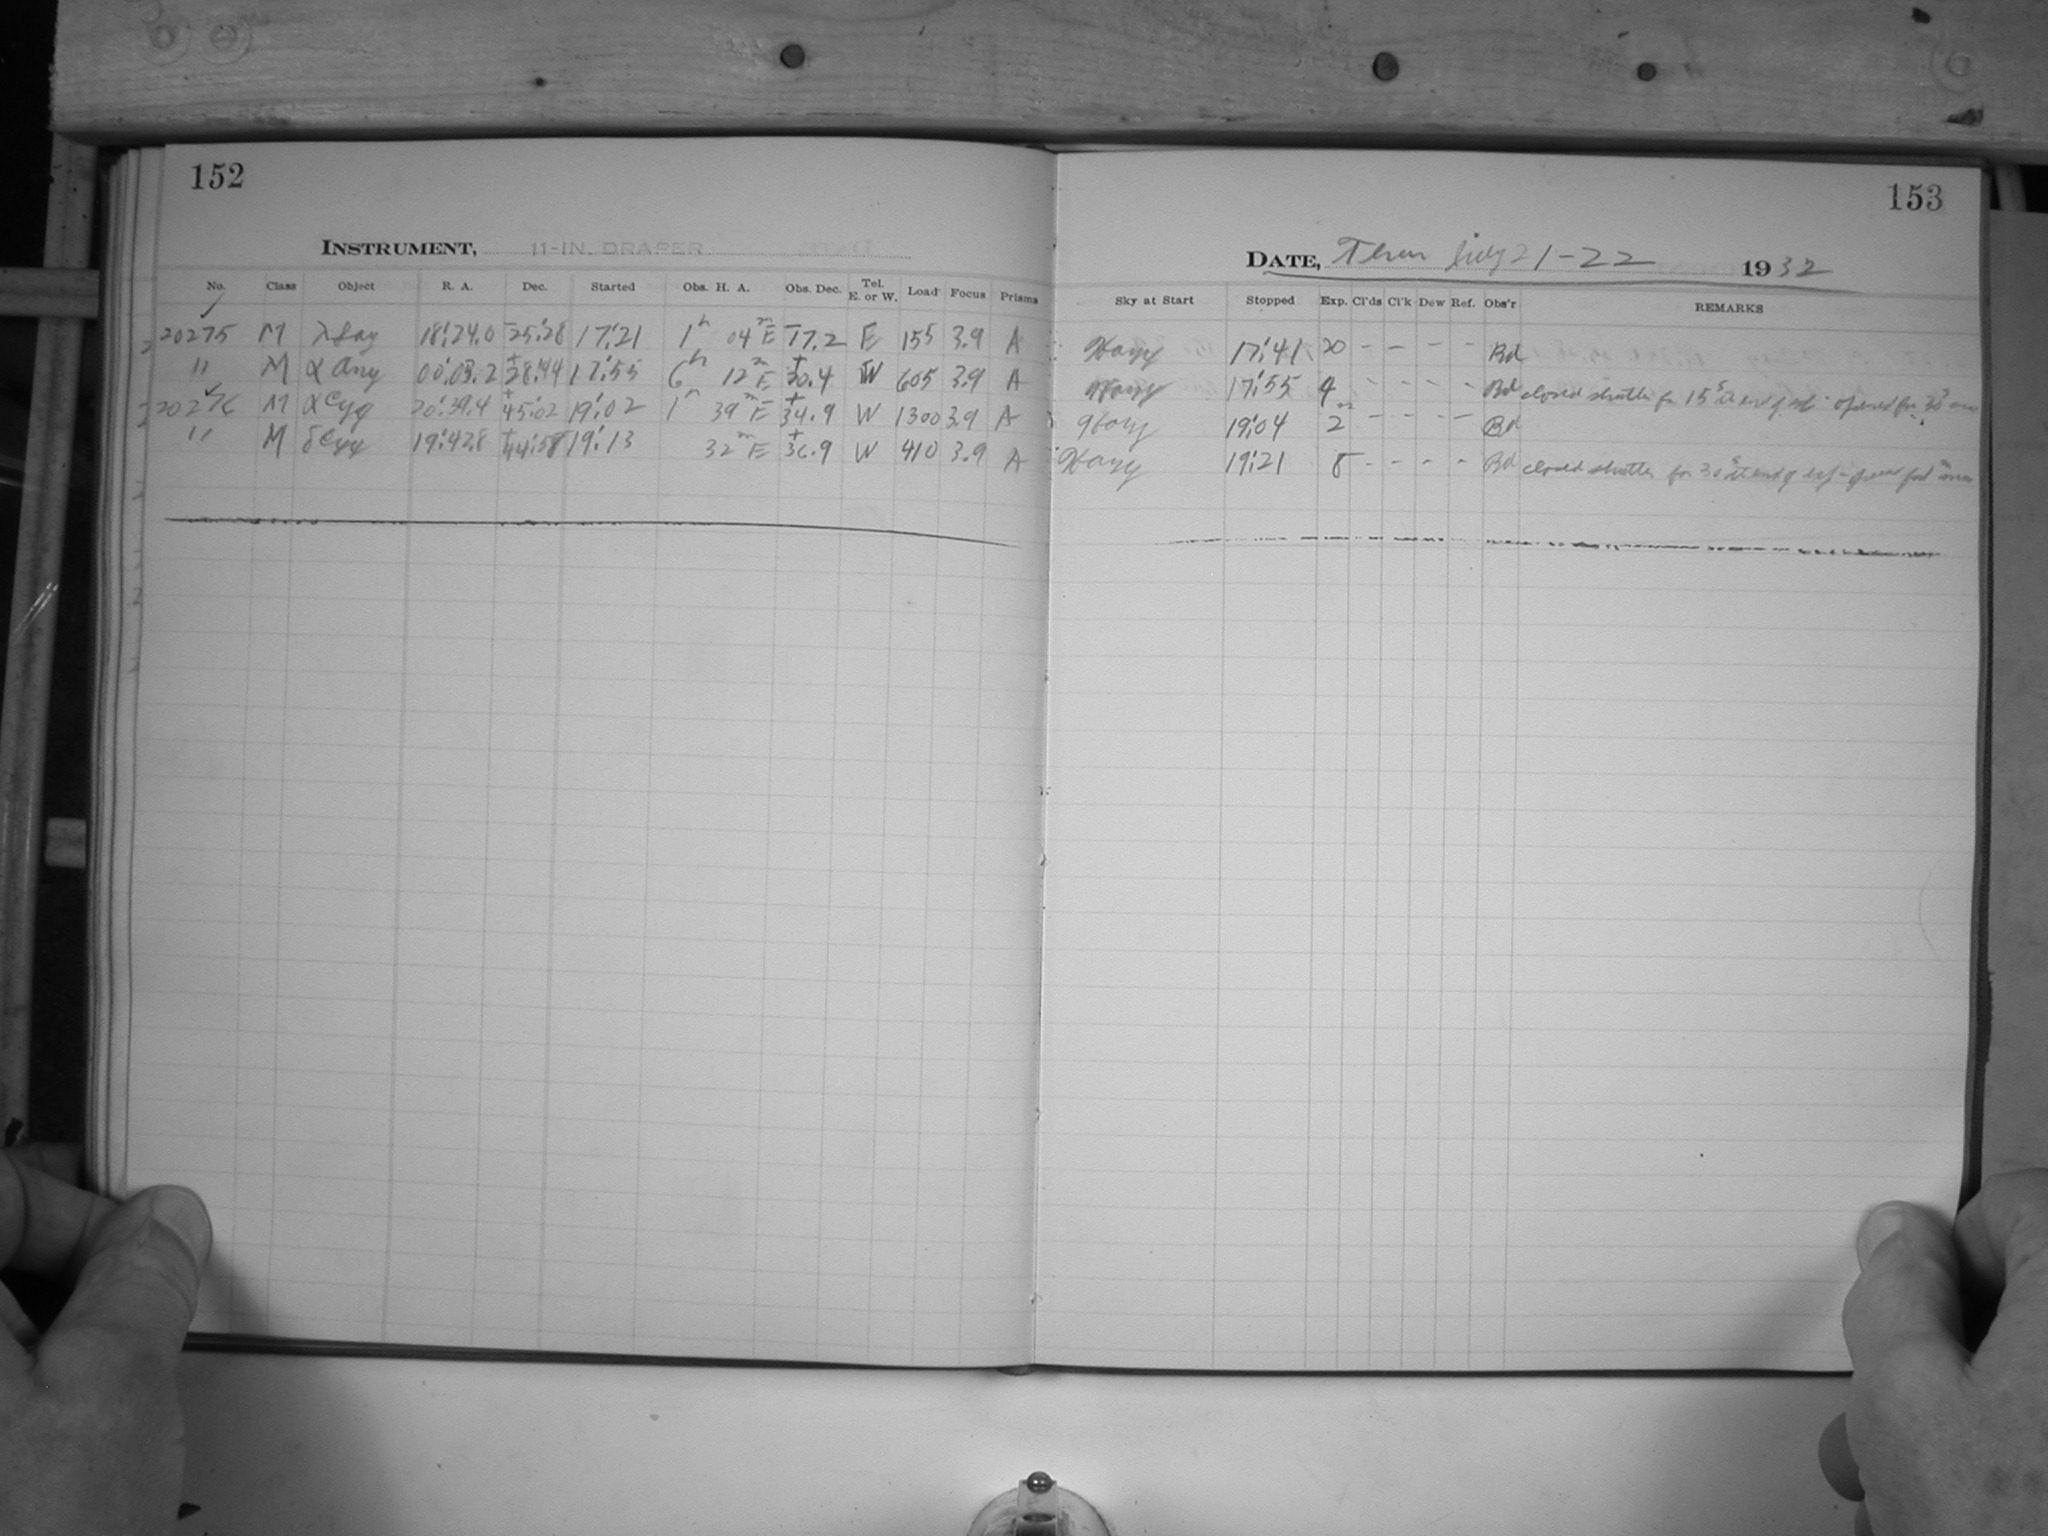 152
153
INSTRUMENT, 11-IN. DRAPER
DATE, Thur July 21-22 1932
No. Class Object R. A. Dec. Started Obs. H. A. Obs. Dec. Tel. E. or W. Load Focus Prisms Sky at Start Stopped Exp. Cl'ds Cl'k Dew Ref. Obs'r REMARKS
20275 M λ Sag 18:24.0 -25:28 17:21 1h 04m E -17.2 E 155 3.9 A Hazy 17:41 20 - - - - Bd
" M α And 00:03.2 +28:44 17:55 6h 12m E +30.4 W 605 3.9 A Hazy 17:55 4 - - - - Bd closed shutter for 15s at end of exp - opened for 30s more
20276 M α Cyg 20:39.4 +45:02 19:02 1h 39m E +34.9 W 1300 3.9 A Hazy 19:04 2m - - - - Bd
" M δ Cyg 19:42.8 +44:58 19:13 32m E +36.9 W 410 3.9 A Hazy 19:21 8 - - - - Bd closed shutter for 30s at end of exp -